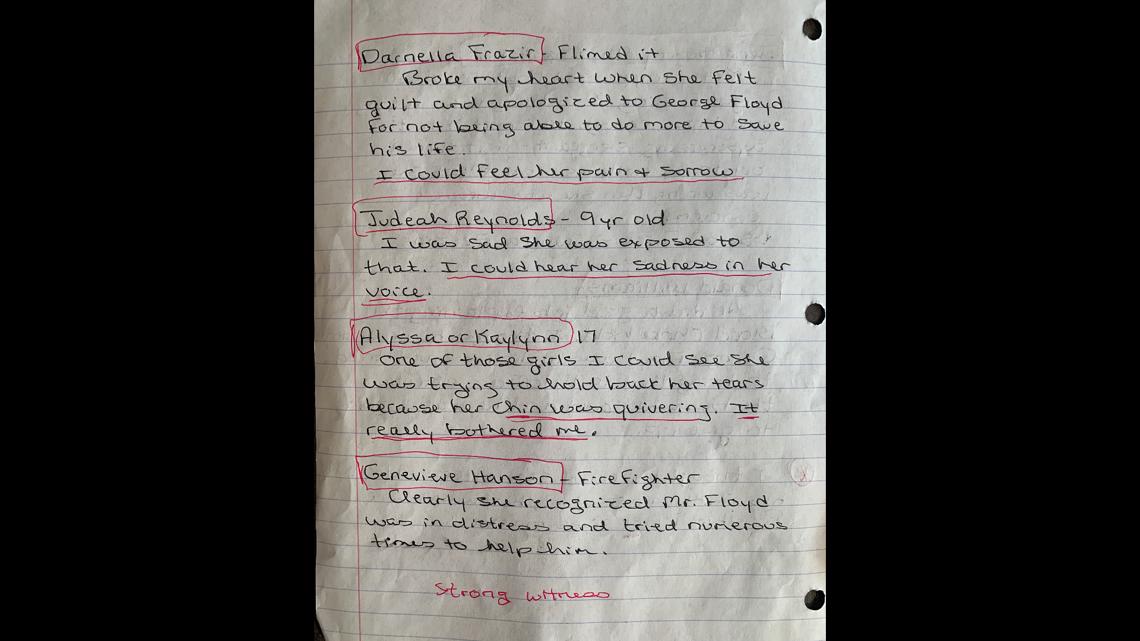 Darnella Frazir - Flimed it
Broke my heart when she felt
guilt and apologized to George Floyd
for not being able to do more to save
his life.
I could feel her pain + sorrow
Judeah Reynolds - 9 yr old
I was sad she was exposed to
that. I could hear her sadness in her
voice.
Alyssa or Kaylynn 17
One of those girls I could see she
was trying to hold back her tears
because her chin was quivering. It
really bothered me.
Genevieve Hanson - Firefighter
Clearly she recognized Mr. Floyd
was in distress and tried numerous
times to help him.
Strong witness